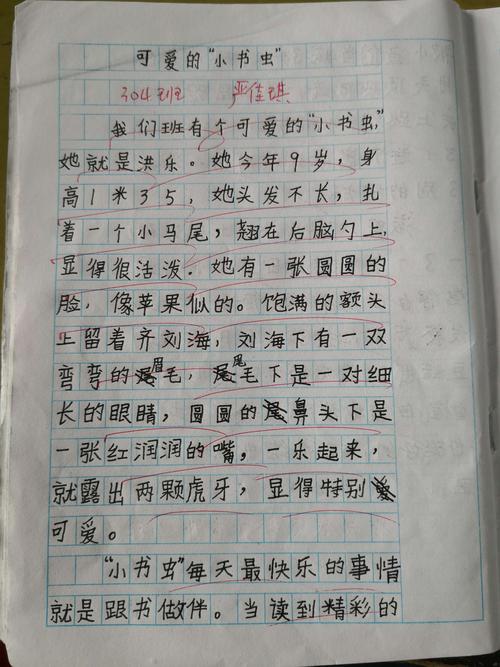 可爱的“小书虫”
304班 严佳琪
我们班有个可爱的“小书虫”,
她就是洪乐。她今年9岁，身
高1米35，她头发不长，扎
着一个小马尾，翘在后脑勺上，
显得很活泼．她有一张圆圆的
脸，像苹果似的。饱满的额头
上留着齐刘海，刘海下有一双
弯弯的眉毛，尾毛下是一对细
长的眼睛，圆圆的鼻头下是
一张红润润的嘴，一乐起来，
就露出两颗虎牙，显得特别
可爱。
“小书虫”每天最快乐的事情
就是跟书做伴。当读到精彩的